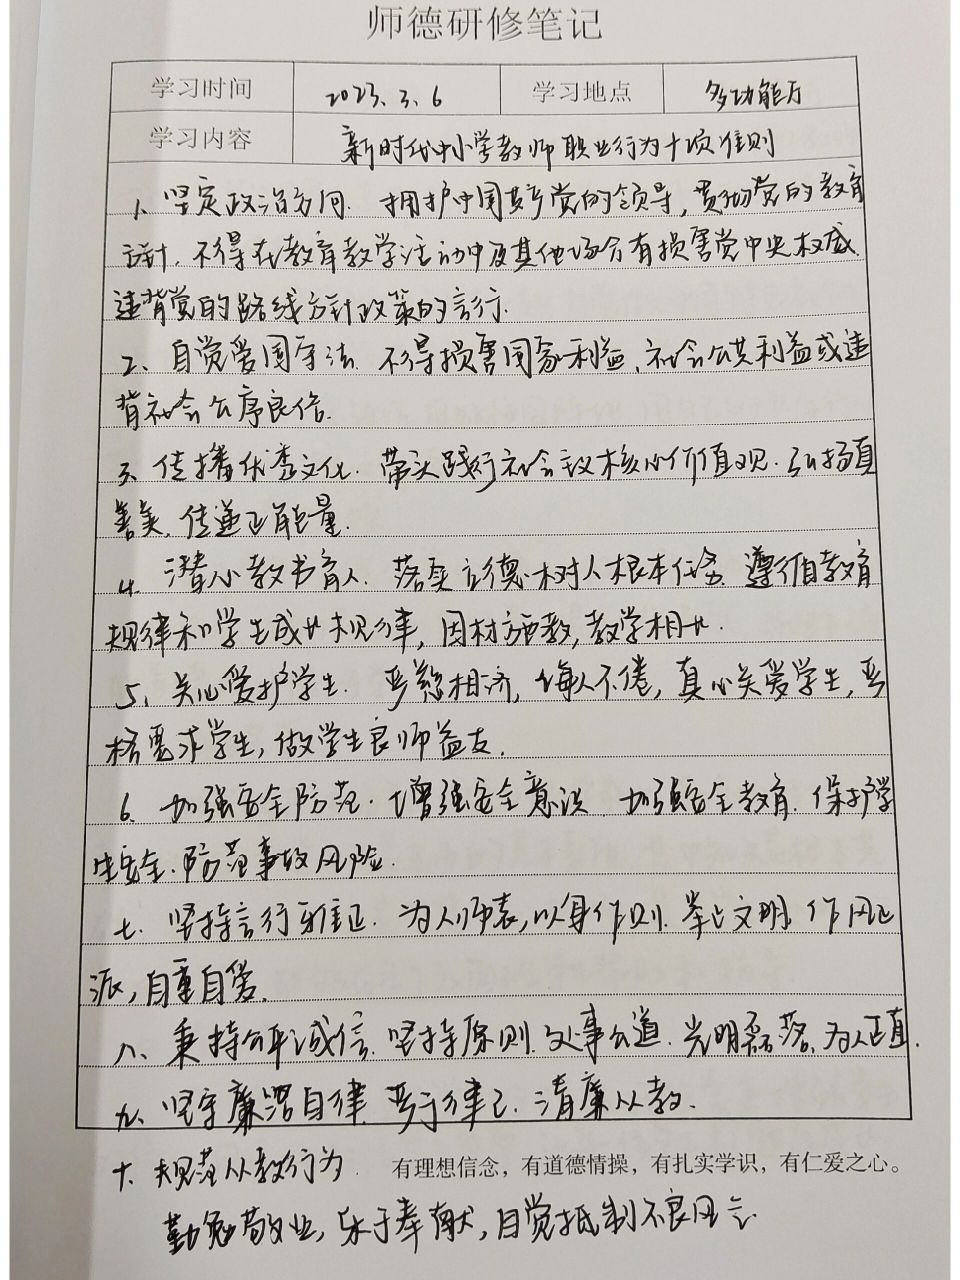 师德研修笔记
学习时间 2023.3.6 学习地点 多功能厅
学习内容 新时代中小学教师职业行为十项准则
1、坚定政治方向. 拥护中国共产党的领导,贯彻党的教育
方针.不得在教育教学活动中及其他场合有损害党中央权威.
违背党的路线方针政策的言行.
2、自觉爱国守法. 不得损害国家利益、社会公共利益或违
背社会公序良俗.
3、传播优秀文化. 带头践行社会主义核心价值观.弘扬真
善美,传递正能量.
4、潜心教书育人. 落实立德树人根本任务 遵循教育
规律和学生成长规律,因材施教,教学相长.
5、关心爱护学生. 严慈相济,诲人不倦,真心关爱学生,严
格要求学生,做学生良师益友.
6、加强安全防范.增强安全意识 加强安全教育.保护学
生安全.防范事故风险.
七、坚持言行雅正. 为人师表,以身作则.举止文明 作风正
派,自重自爱.
八、秉持公平诚信.坚持原则.处事公道.光明磊落、为人正直.
九、坚守廉洁自律.严于律己.清廉从教.
十、规范从教行为 有理想信念,有道德情操,有扎实学识,有仁爱之心。
勤勉敬业,乐于奉献,自觉抵制不良风气